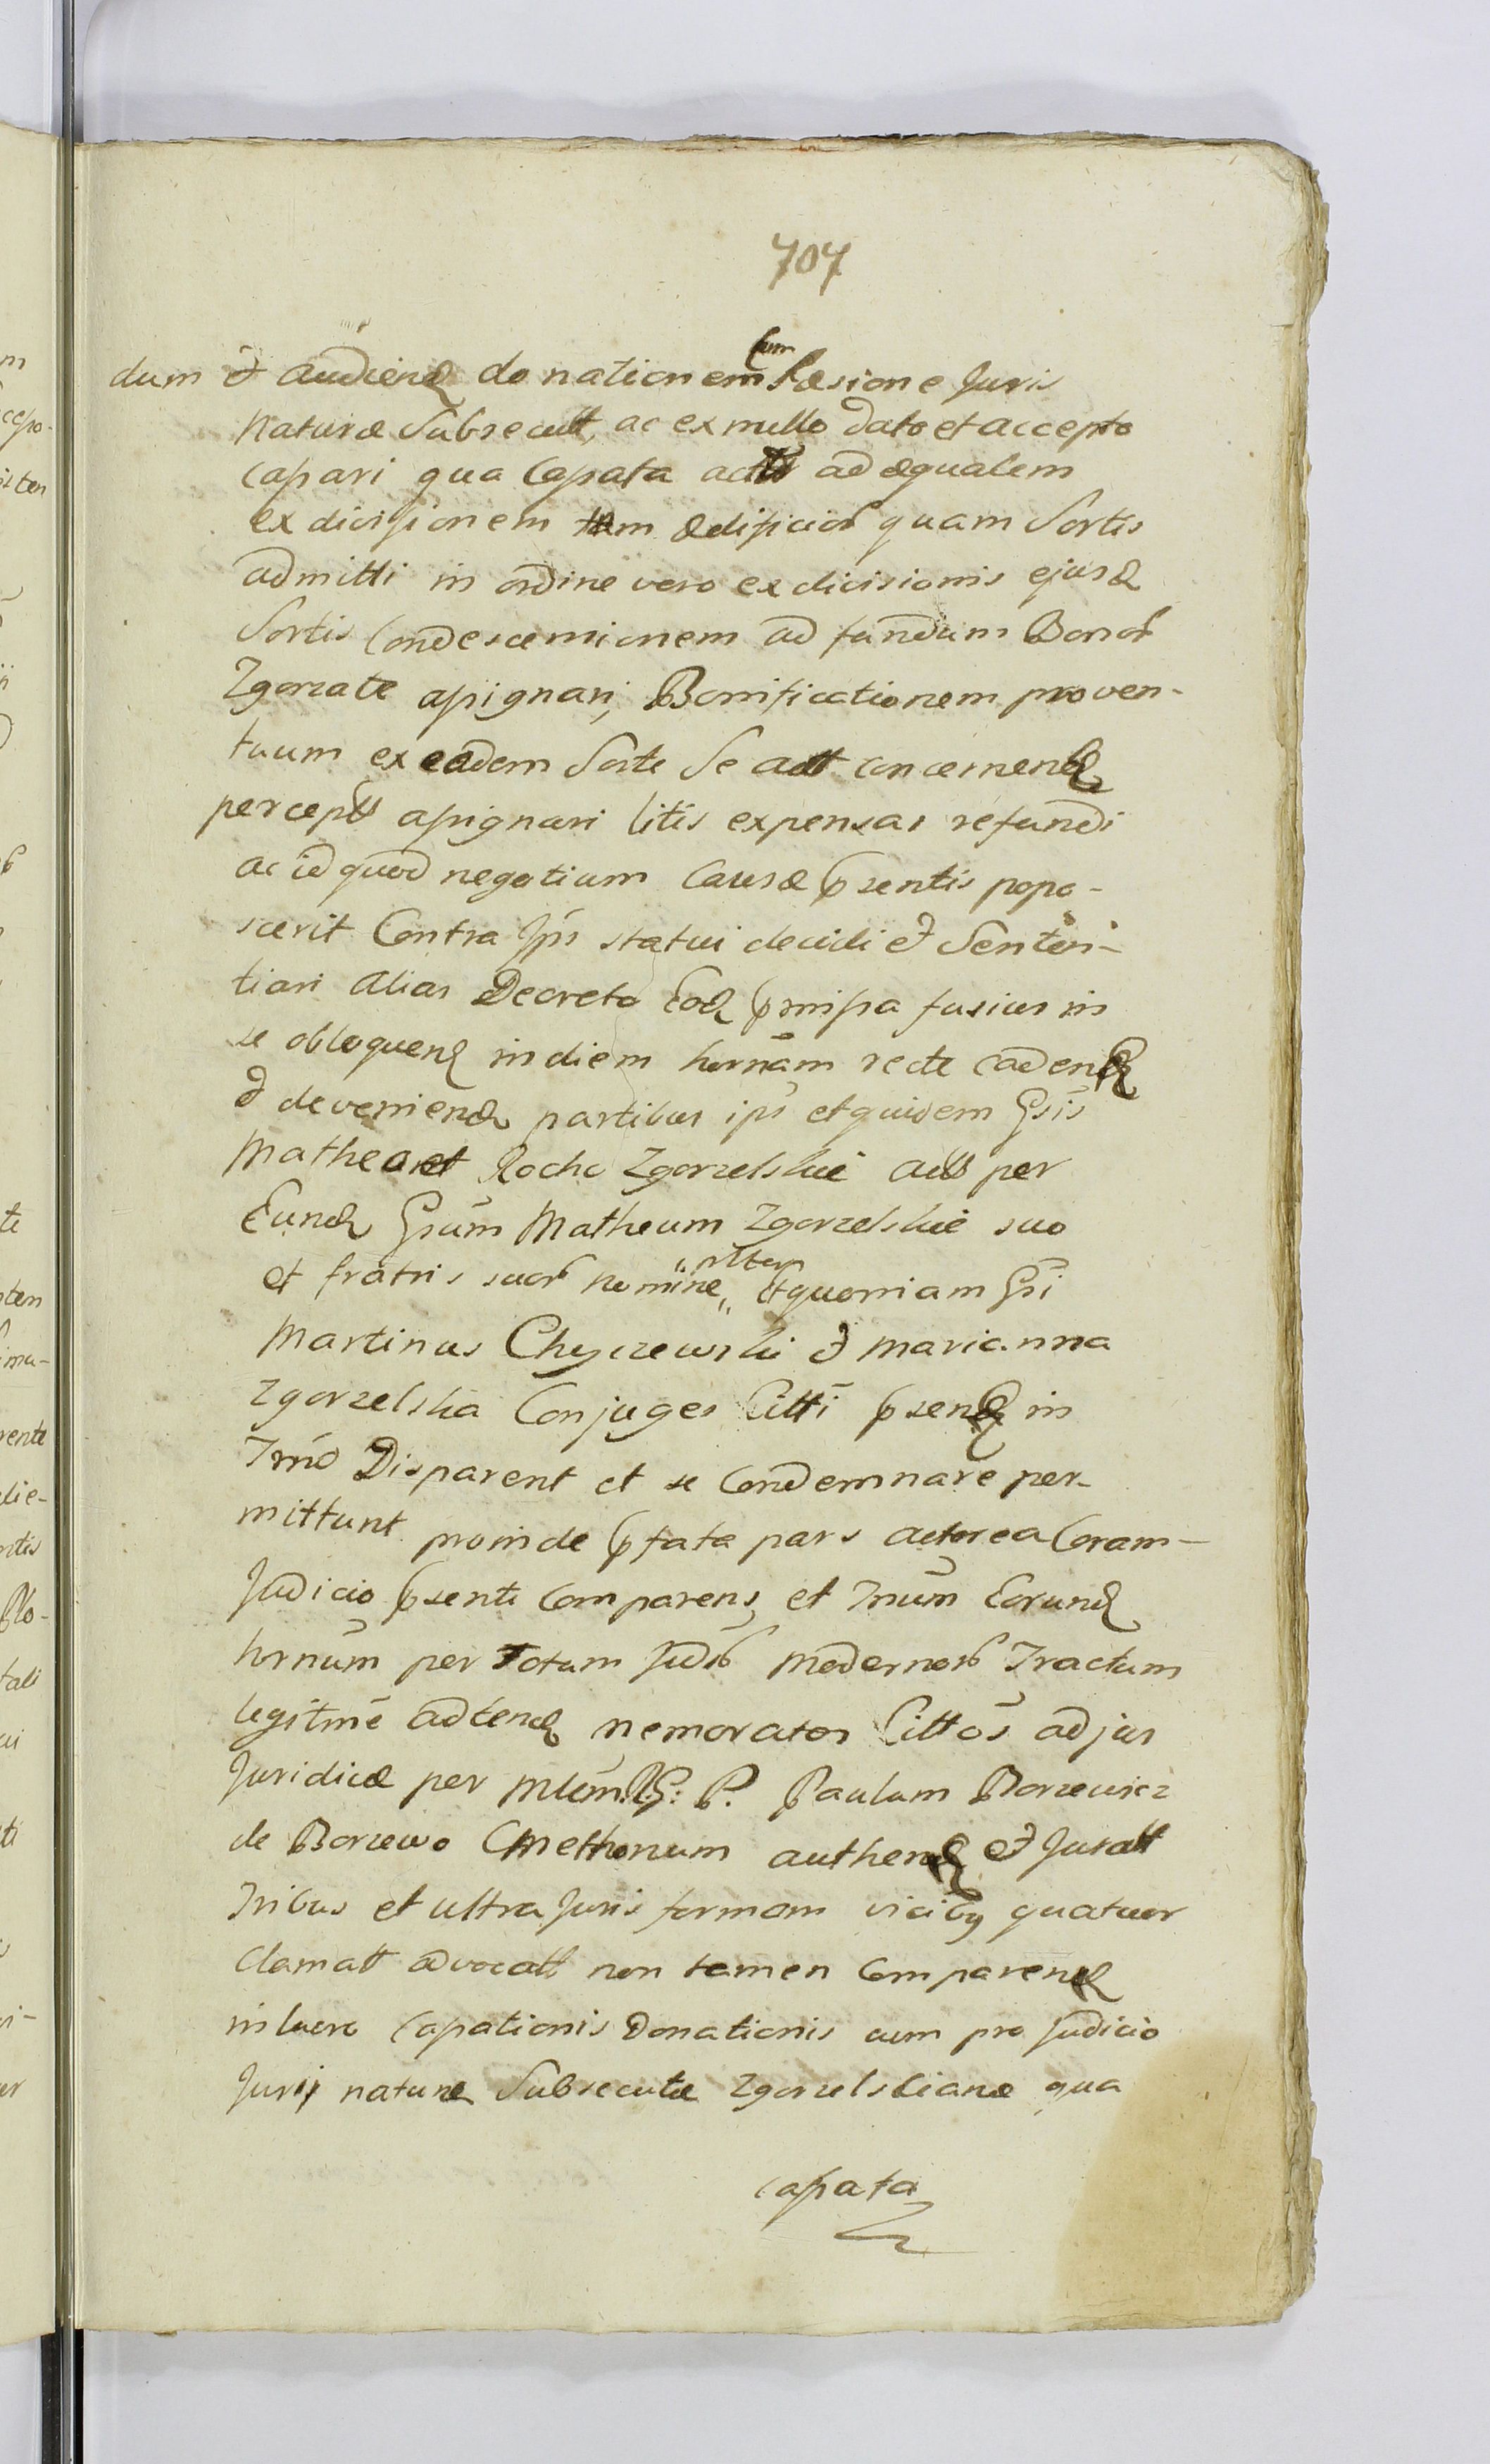 707
dum et audiend donationem cum Læsione Juris
Naturæ Subsecutt, ac ex nullo dato et accepto
Cassari qua Cassata actt ad æqualem
ex divisionem tam ædificior quam Sortis
admitti in ordine vero ex divisionis ejusd
Sortis Condescensionem ad fundum Bonor
Zgorzałe assignari, Bonificationem proven-
tuum ex eadem Sorte Se actt concernend
percept assignari litis expensas refundi
ac id quod negotium Causæ psentis popo-
scerit Contra Ips statui decidi et Senten-
tiari alias Decreto Eod pmissa fusius in
se obloquend in diem hornam recte cadend
et deveniend partibus ips et quidem Gsis
Matheo et Rocho Zgorzelskie actt per
Eund Gsum Matheum Zgorzelskie suo
et fratris suor nomine, Et quoniam Gsi
Martinus Chyczewski et Marianna
Zgorzelska Conjuges Citti psend in
Tmo Disparent et se Condemnare per-
mittunt proinde pfata pars actorea Coram
Judicio psenti Comparens, et Tnum Eorund
hornum per Totum Judr modernor Tractum
legitme adtend memoratos Cittos ad jus
Juridice per Mlem. G: P. Paulum Borzewicz
de Borzewo Cmethonum authend et Juratt
Tribus et ultra Juris formam vicibq quatuor
Clamatt advocatt non tamen Comparend
in lucro Cassationis Donationis cum pro Judicio
Juris naturæ Subsecutæ Zgorzelscianæ qua
cassata